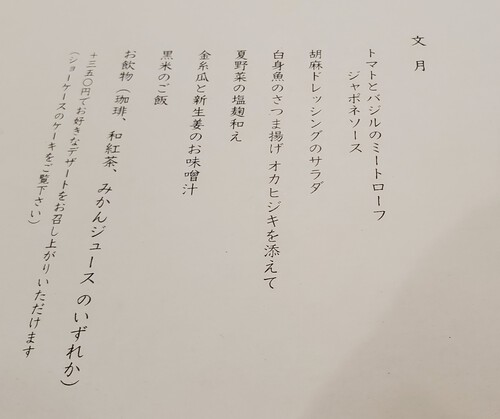 文月
トマトとバジルのミートローフ
ジャポネソース
胡麻ドレッシングのサラダ
白身魚のさつま揚げ オカヒジキを添えて
夏野菜の塩麹和え
金糸瓜と新生姜のお味噌汁
黒米のご飯
お飲物（珈琲、和紅茶、みかんジュース のいずれか）
＋三五〇円でお好きなデザートをお召し上がりいただけます
（ショーケースのケーキをご覧下さい）